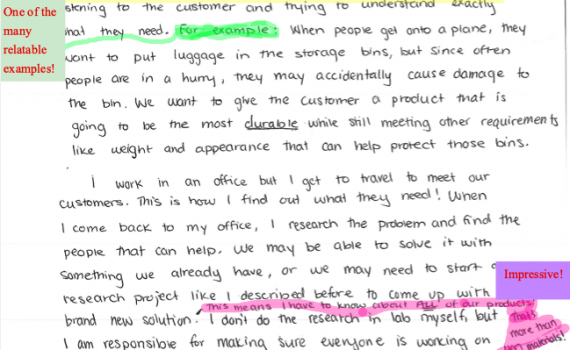 One of the
many
relatable
examples!
stening to the customer and trying to understand exactly
hat they need. For example: When people get onto a plane, they
want to put luggage in the storage bins, but since often
people are in a hurry, they may accidentally cause damage to
the bin. We want to give the customer a product that is
going to be the most durable while still meeting other requirements
like weight and appearance that can help protect those bins.
I work in an office but I get to travel to meet our
customers. This is how I find out what they need! When
I come back to my office, I research the problem and find the
people that can help. We may be able to solve it with
something we already have, or we may need to start
Impressive!
research project like I described before to come up with
This means I have to know about ALL of our products!
brand new solution. I don't do the research in lab myself, but
That's
more than
materials!
I am responsible for making sure everyone is working on